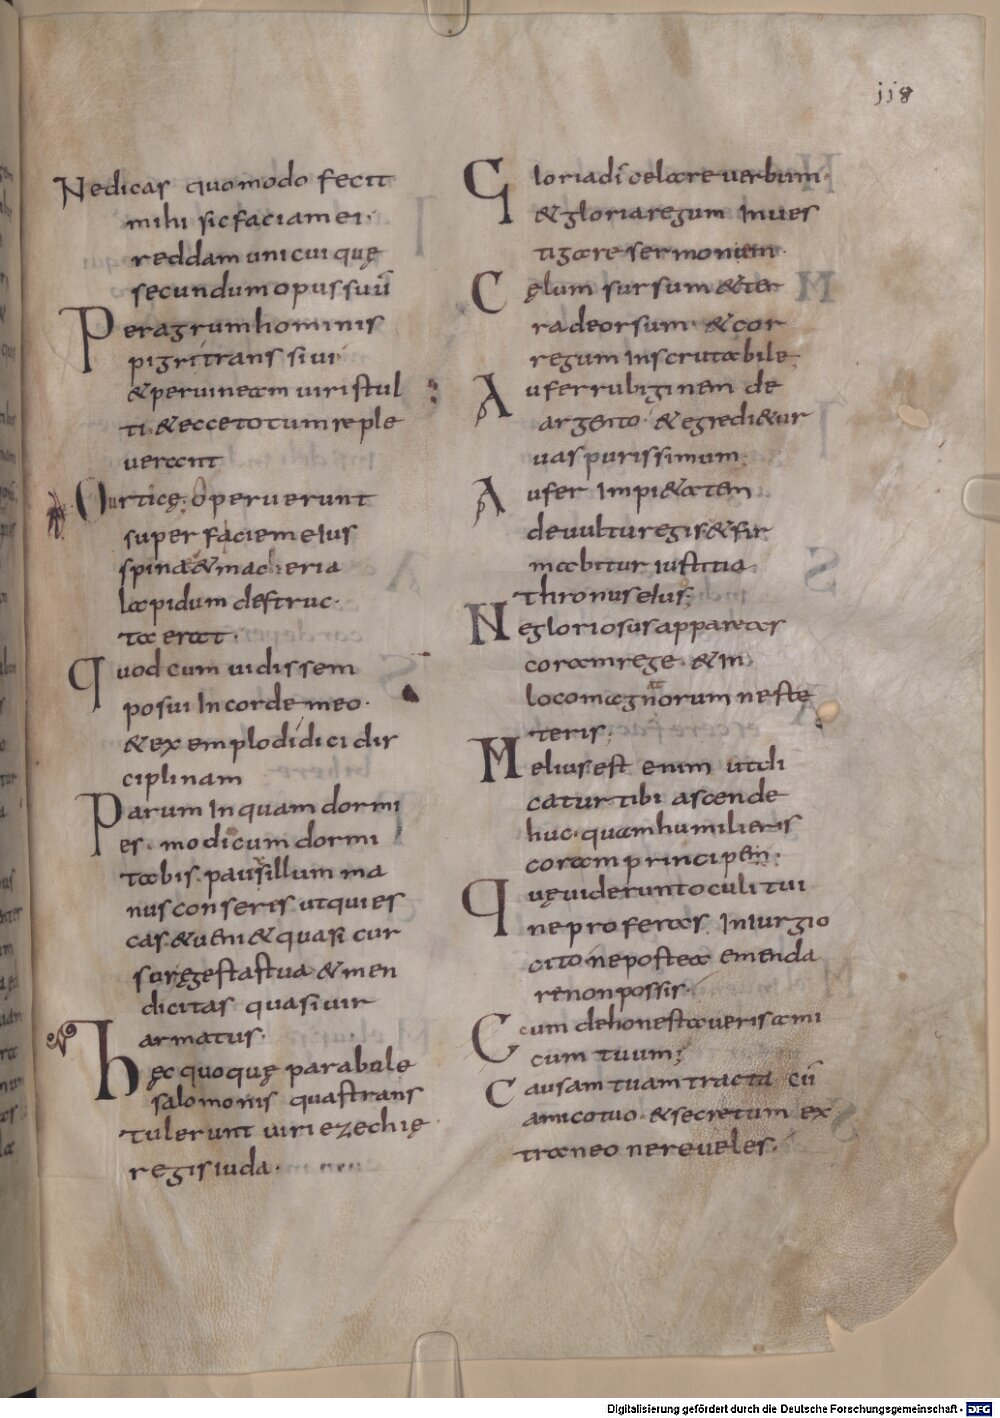 jj8
Nedicas quomodo fecit
mihi sic faciam ei·
reddam unicuique
secundum opus suū
Per agrum hominis
pigri transsivi
& per vineam viri stul
ti· & ecce totum reple
verant
urticę· Operuerunt
superfaciem eius
spinæ & macheria
lapidum destruc·
ta erat·
Quod cum vidissem
posui in corde meo·
& exemplo didici dis
ciplinam
Parum inquam dormi
es· modicum dormi
tabis· pausillum ma
nus conseris ut quies
cas· & veni& quasi cur
sor egestas tua & men
dicitas quasi vir
armatus·
hęc quoquę parabole
salomonis quas trans
tulerunt viri ezechię
regis iuda·
Gloria dī celare verbum·
& gloria regum inves
tigare sermonem·
Cęlum sursum & ter
ra deorsum· & cor
regum inscrutabile·
Aufer rubiginem de
argento· & egredi&ur
vas purissimum·
Aufer impi&atem
de vultu regis & fir
mabitur iustitia
thronus eius;
Ne gloriosus appareas
coram rege· & in
loco magnorum ne ste
teris;
Melius est enim ut di
catur tibi ascende
huc· quam humilieris
coram principem·
Quę viderunt oculi tui
ne proferas in iurgio
cito· ne postea emenda
re non possis·
Cum dehonestaveris ami
cum tuum;
Causam tuam tracta cū
amico tuo· & secretum ex
traneo ne reveles·
Digitalisierung gefördert durch die Deutsche Forschungsgemeinschaft - DFG